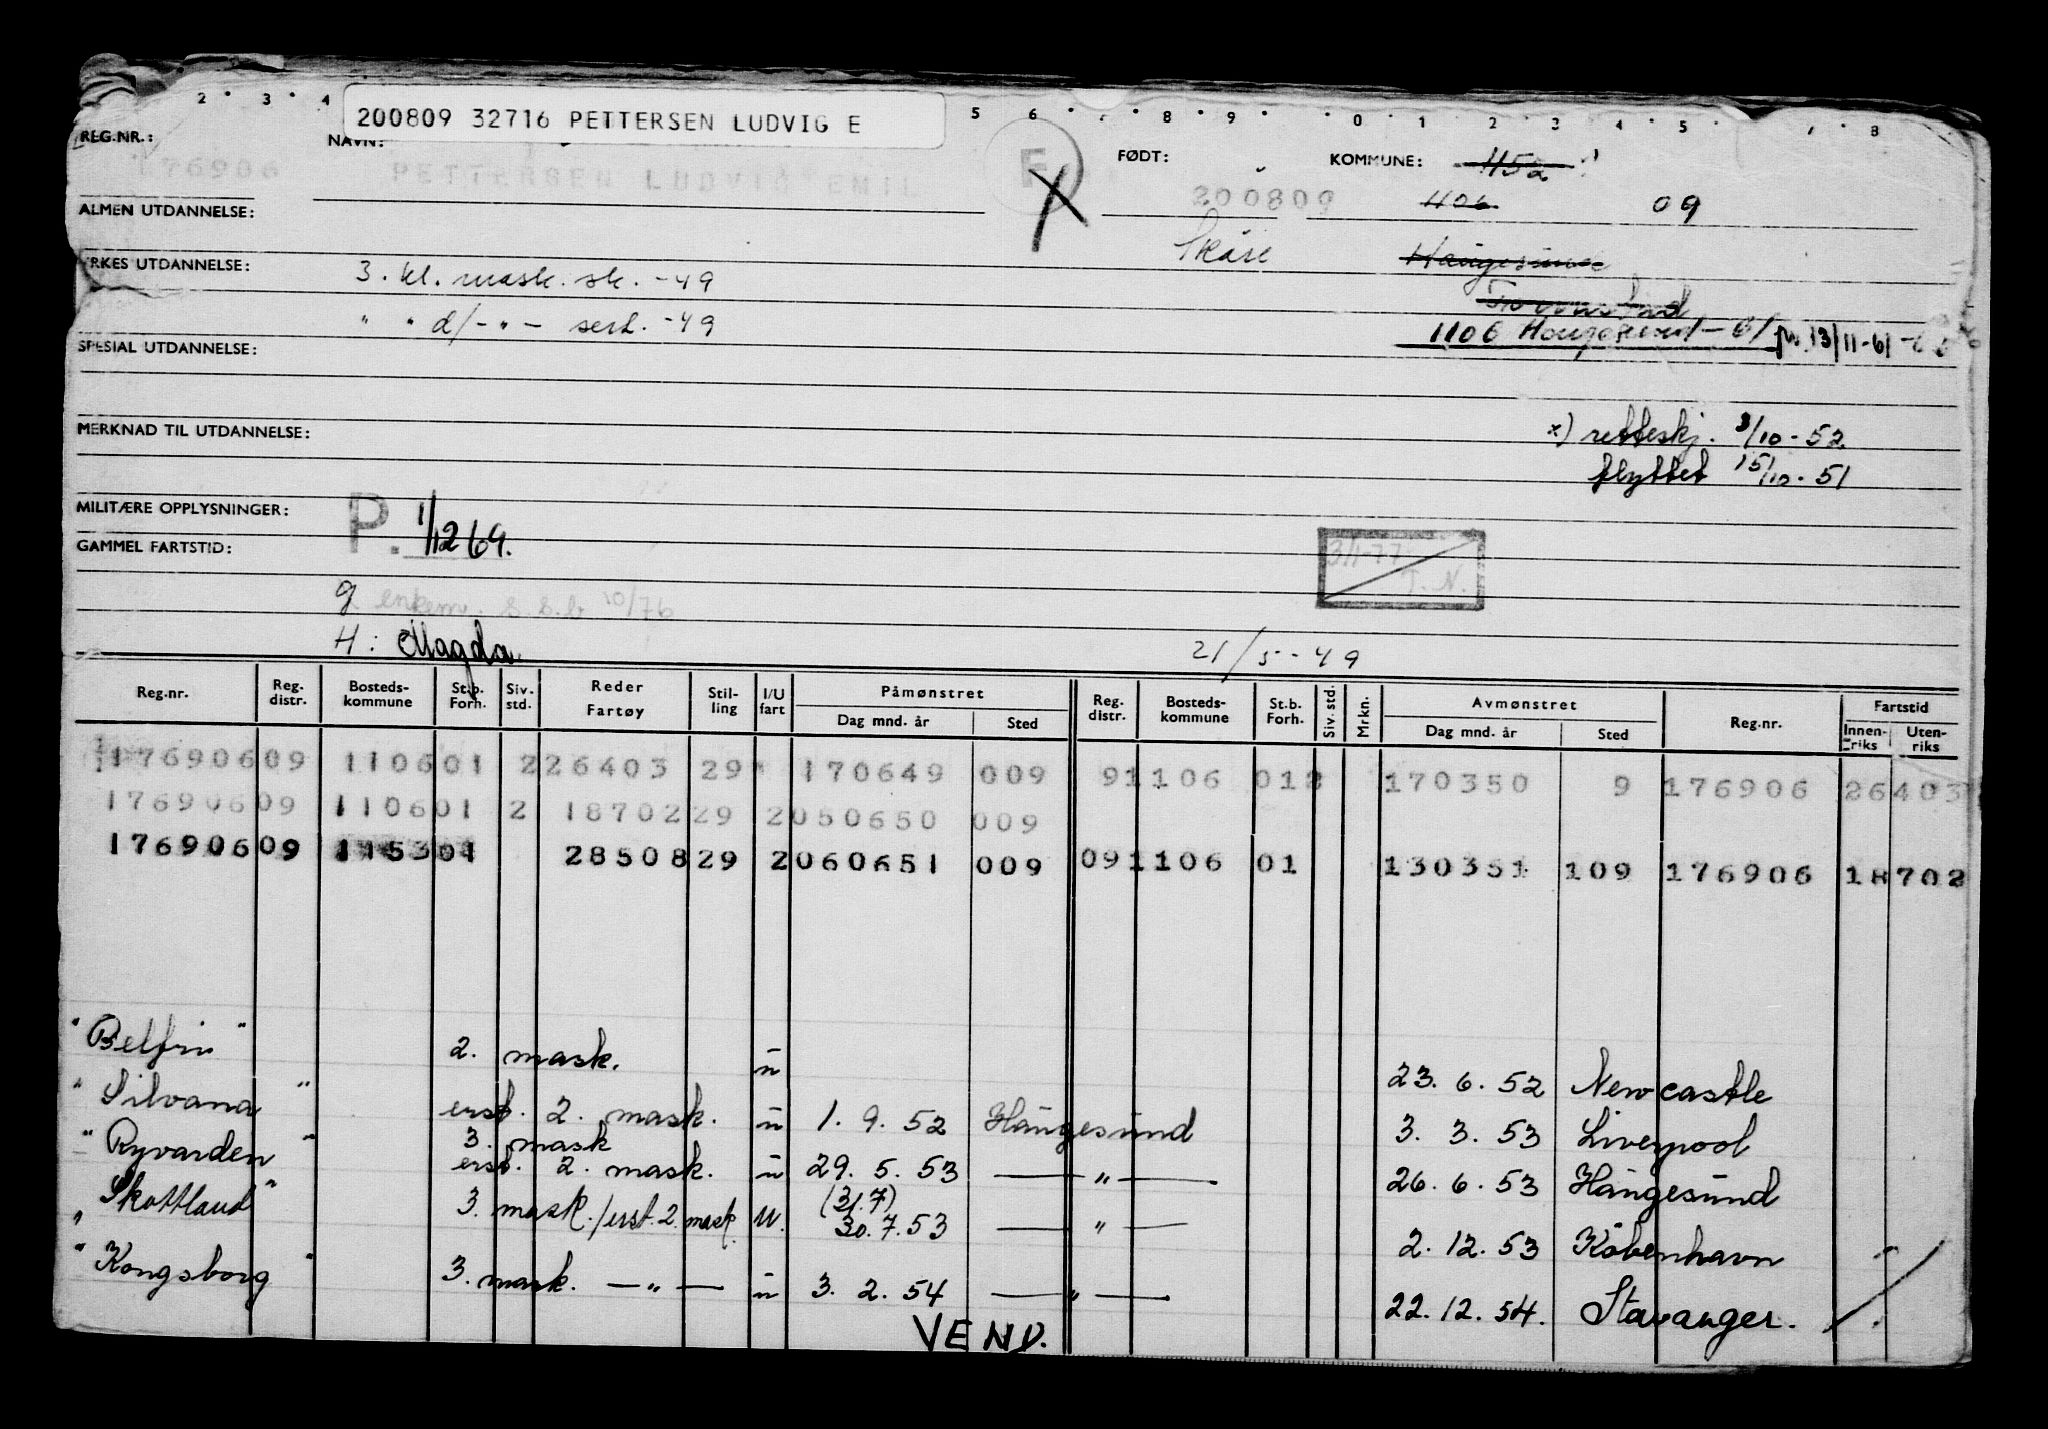 2 · 3 · 4 5 6 · 8 · 9 · · 0 · 1 · 2 · 3 · 4 · 5 · 7 · 8
200809 32716 PETTERSEN LUDVIG E
REG.NR.: NAVN: FØDT: KOMMUNE: 1152
176906 PETTERSEN LUDVIG EMIL F 200809 1106 09
ALMEN UTDANNELSE:
Skåre Haugesund
YRKES UTDANNELSE: 3. kl. mask. sk. -49
Torvastad
" " d/-"- sert. -49
1106 Haugesund - 61 13/11-61
SPESIAL UTDANNELSE:
MERKNAD TIL UTDANNELSE:
x) retteskj. 3/10-52.
flyttet 15/10-51
MILITÆRE OPPLYSNINGER: P. 1/12 69.
GAMMEL FARTSTID:
3/1-77 T. N.
g enkem. s.s.b 10/76
H: Magda 21/5-49
Reg.nr. Reg. distr. Bosteds-kommune St.b. Forh. Siv. std. Reder Fartøy Stil-ling I/U fart Påmønstret Dag mnd. år Sted Reg. distr. Bosteds-kommune St.b. Forh. Siv. std. Mrkn. Avmønstret Dag mnd. år Sted Reg.nr. Fartstid Innen-riks Uten-riks
176906 09 1106 01 2 26403 29 170649 009 9 1106 01 2 170350 9 176906 26403
176906 09 1106 01 2 18702 29 2 050650 009
176906 09 1153 01 28508 29 2 060651 009 09 1106 01 130351 109 176906 18702
"Belfri" 2. mask. u 23. 6. 52 Newcastle
"Silvana" erst. 2. mask. u 1. 9. 52 Haugesund 3. 3. 53 Liverpool
"Ryvarden" 3. mask erst. 2. mask. u 29. 5. 53 — " — 26. 6. 53 Haugesund
"Skottland" 3. mask./erst. 2. mask. u. (31.7) 30. 7. 53 — " — 2. 12. 53 København
"Kongsborg" 3. mask. — " — u 3. 2. 54 — " — 22. 12. 54. Stavanger.
VEND.